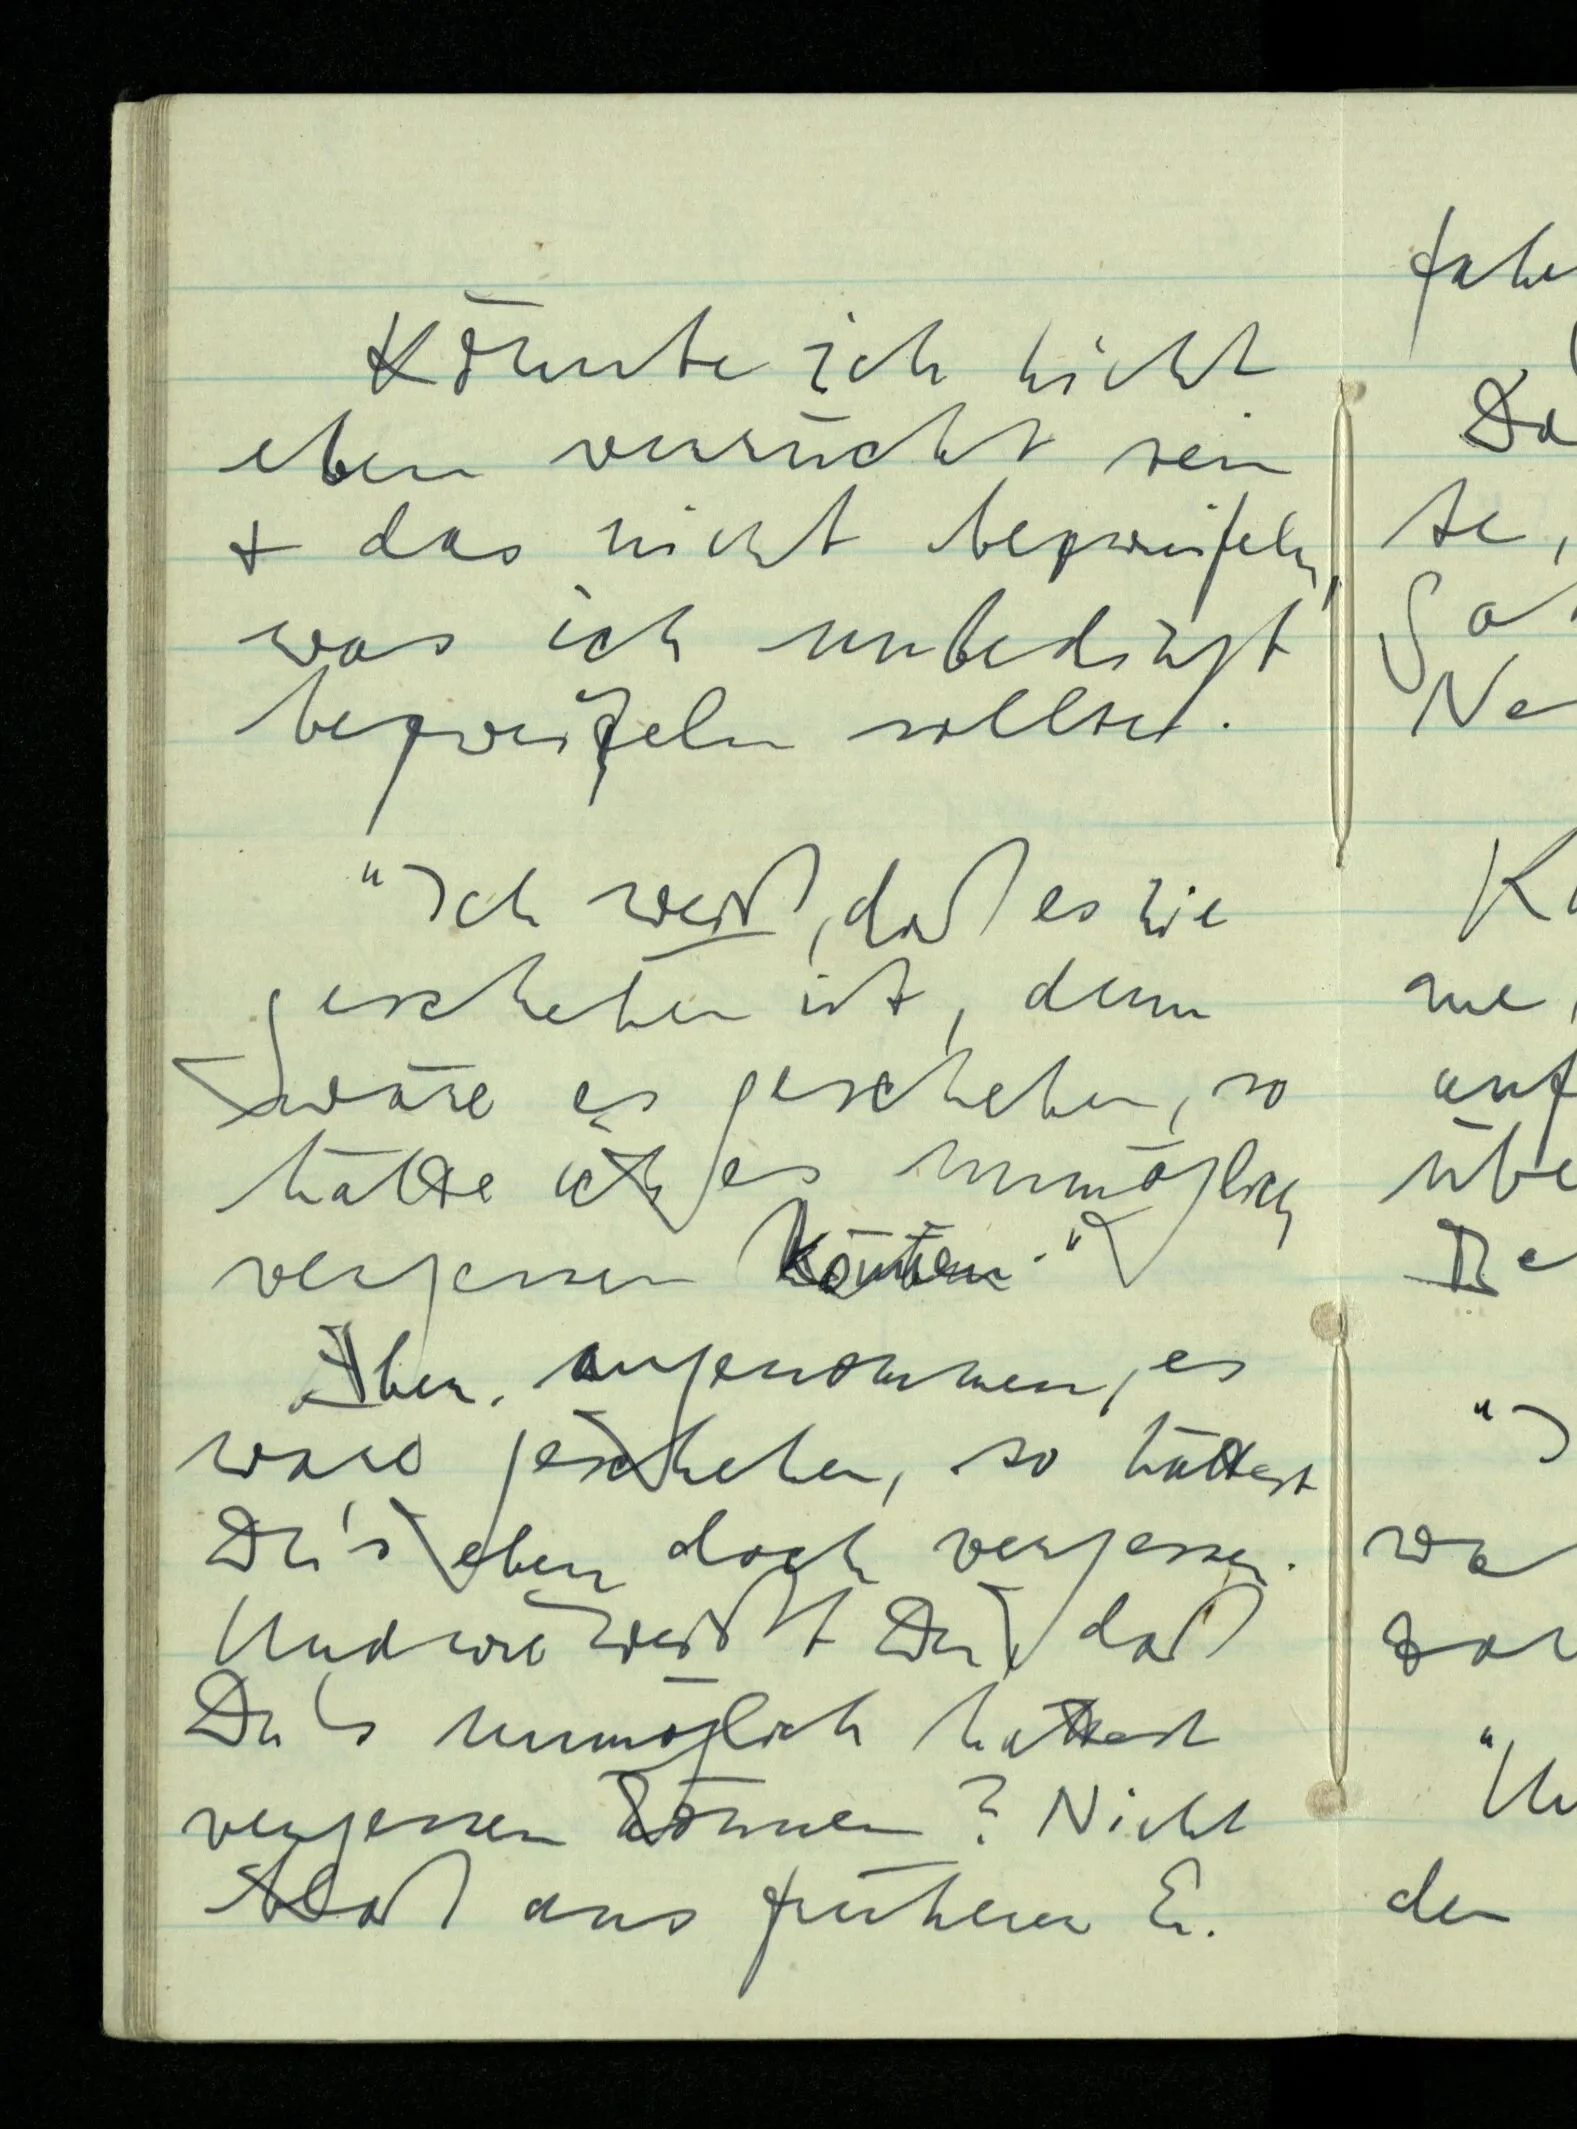 Könnte ich nicht
eben verrückt sein
+ das nicht bezweifeln,
was ich unbedingt
bezweifeln sollte.
"Ich weiß, daß es nie
geschehen ist, denn
wäre es geschehen, so
hätte ich es unmöglich
vergessen können."
Aber, angenommen, es
wäre geschehen, so hättest
Du's eben doch vergessen.
Und wie weißt Du, daß
Du's unmöglich hättest
vergessen können? Nicht
bloß aus früherer E.
Da
te,
Ne
K
me,
auf
übe
De
"I
wa
"Un
den